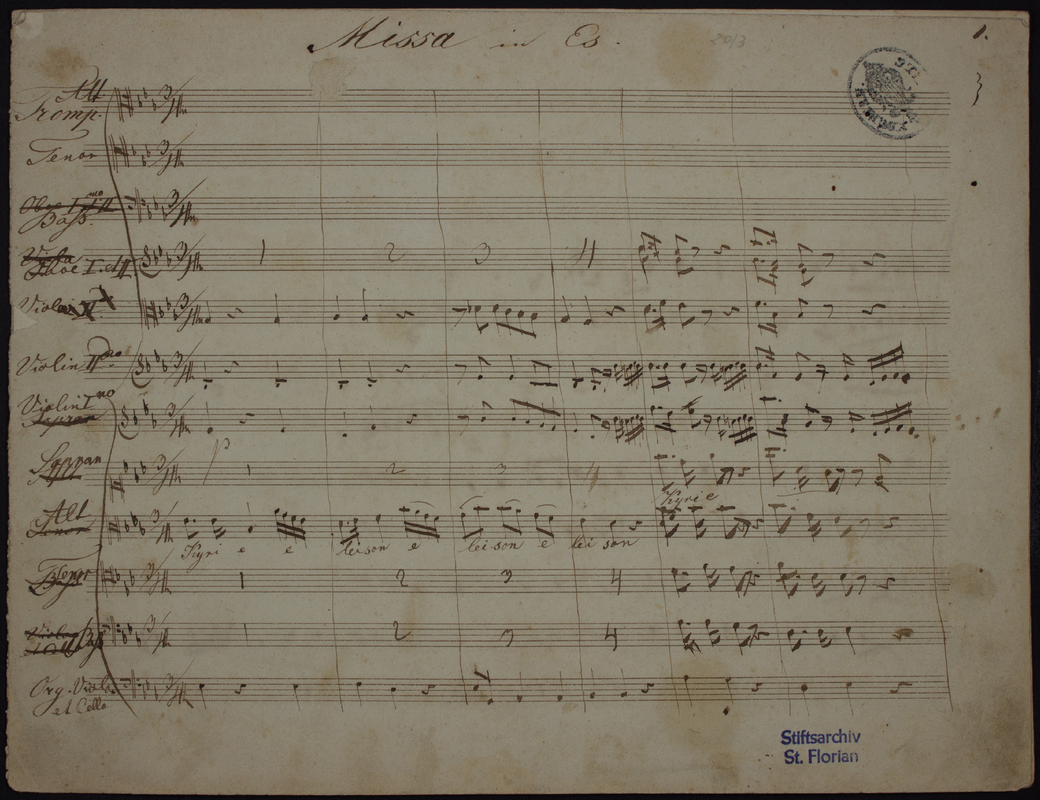 Missa in Es.
20/3
1.
Alt
Tromp.
Tenor
Bass.
Oboe I. et II
Viola
Violin II do
Violin I mo
Sopran
Alt
Tenor
Bass
Org. Viol.
et Cello
1 2 3 4
p
1 2 3 4
Kyrie
Kyri e e leison e leison e lei son
1 2 3 4
1 2 3 4
Stiftsarchiv
St. Florian